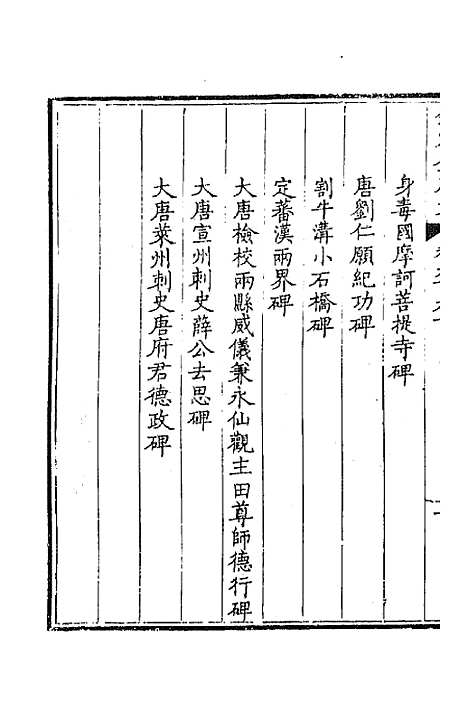 身毒國摩訶菩提寺碑
唐劉仁願紀功碑
割牛溝小石橋碑
定蕃漢兩界碑
大唐檢校兩縣威儀兼永仙觀主田尊師德行碑
大唐宣州刺史薛公去思碑
大唐萊州刺史唐府君德政碑